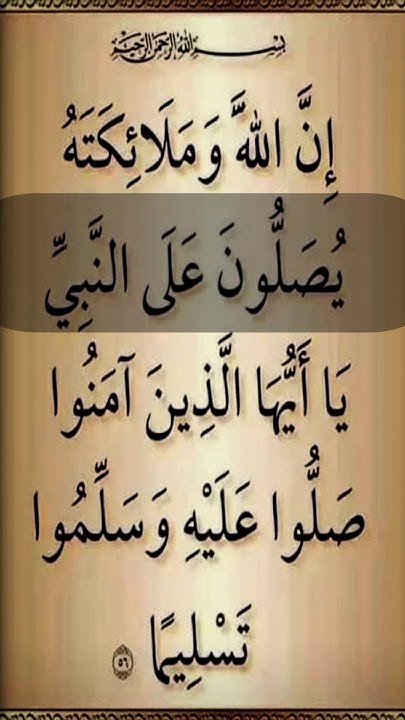 بِسْمِ اللَّهِ الرَّحْمَنِ الرَّحِيمِ
إِنَّ اللَّهَ وَمَلَائِكَتَهُ
يُصَلُّونَ عَلَى النَّبِيِّ
يَا أَيُّهَا الَّذِينَ آمَنُوا
صَلُّوا عَلَيْهِ وَسَلِّمُوا
تَسْلِيمًا ٥٦